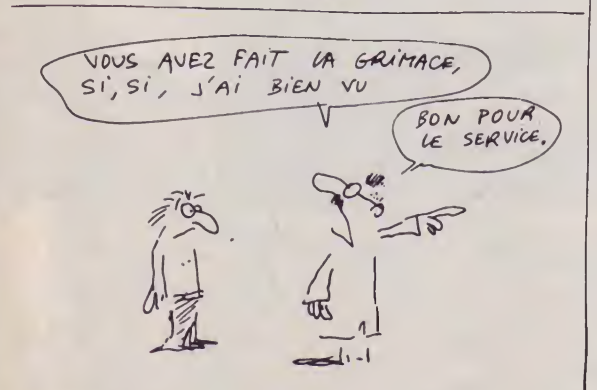 VOUS AVEZ FAIT LA GRIMACE,
SI, SI, J'AI BIEN VU
BON POUR
LE SERVICE.